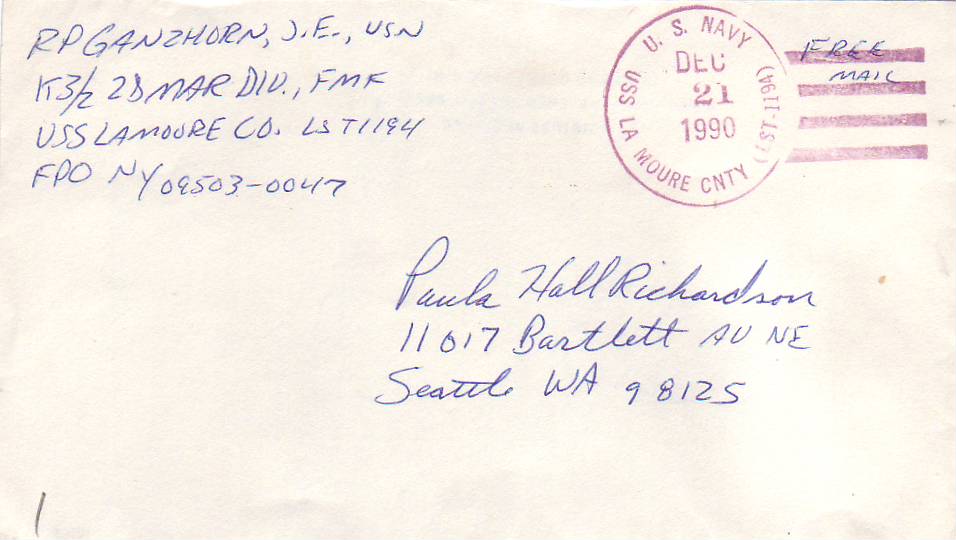 RP GANZHORN, J.E., USN
K3/2 2D MAR DIV., FMF
USS LAMOURE CO. LST1194
FPO NY 09503-0047
U. S. NAVY
DEC
21
1990
USS LA MOURE CNTY (LST-1194)
FREE
MAIL
Paula Hall Richardson
11017 Bartlett AV NE
Seattle WA 98125